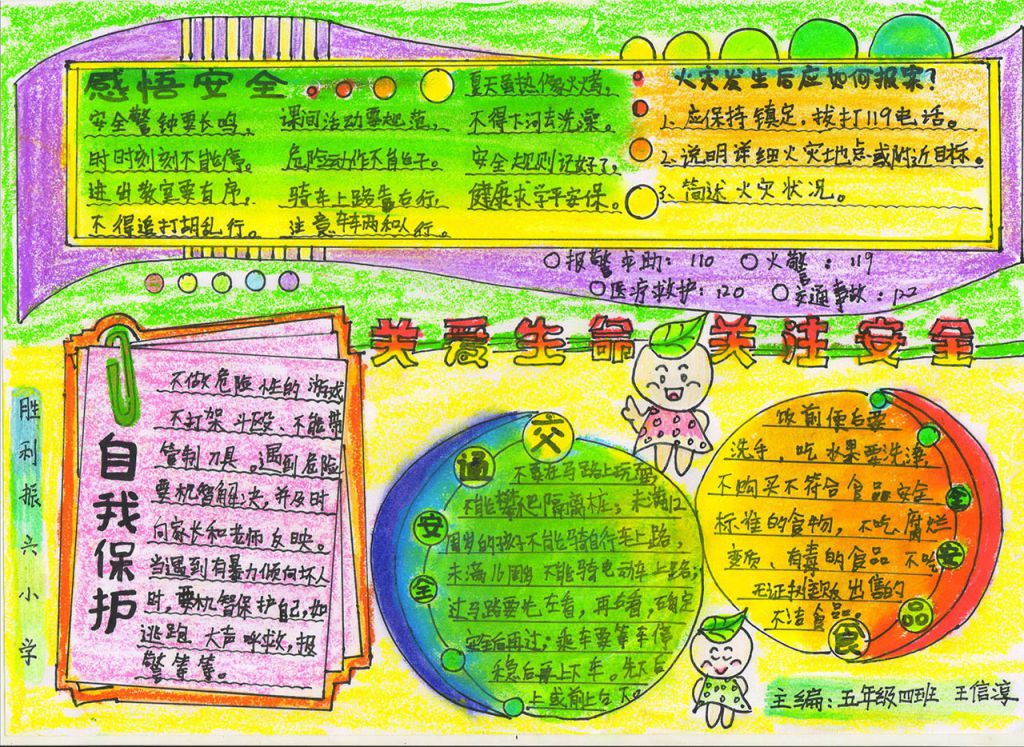 感悟安全
安全警钟要长鸣，
时时刻刻不能停。
进出教室要有序，
不得追打胡乱行。
课间活动要规范，
危险动作不能干。
骑车上路靠右行，
注意车辆和人行。
夏天虽热像火烤，
不得下河去洗澡。
安全规则记好了，
健康求学平安保。
火灾发生后应如何报案？
1、应保持镇定，拔打119电话。
2、说明详细火灾地点或附近目标。
3、简述火灾状况。
报警求助：110 火警：119
医疗救护：120 交通事故：122
关爱生命 关注安全
胜利振兴小学
自我保护
不做危险性的游戏
不打架斗殴、不能带
管制刀具。遇到危险
要机智解决，并及时
向家长和老师反映。
当遇到有暴力倾向坏人
时，要机智保护自己，如
逃跑 大声呼救，报
警等等。
交通安全
不要在马路上玩耍，
不能攀爬隔离桩，未满12
周岁的孩子不能骑自行车上路，
未满16周岁不能骑电动车上路；
过马路要先左看，再右看，在确定
安全后再过；乘车要等车停
稳后再上下车。先下后
上或前上后下。
食品安全
饭前便后要
洗手，吃水果要洗净，
不购买不符合食品安全
标准的食物，不吃腐烂
变质、有毒的食品 不吃
无证摊贩出售的
不洁食品。
主编：五年级四班 王信淳